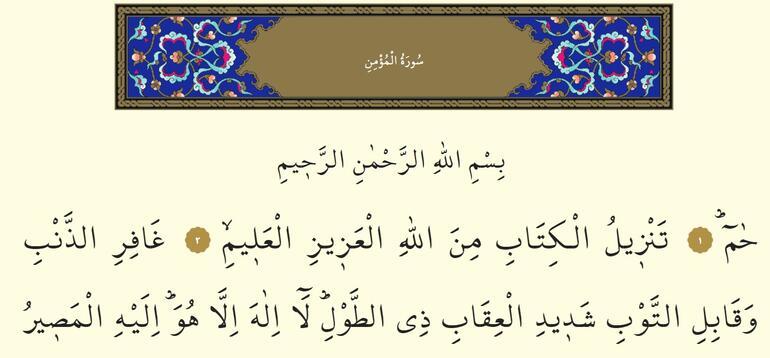 سُورَةُ الْمُؤْمِنِ
بِسْمِ اللهِ الرَّحْمٰنِ الرَّحٖيمِ
حٰمٓ ۚ ١ تَنْزٖيلُ الْكِتَابِ مِنَ اللهِ الْعَزٖيزِ الْعَلٖيمِۙ ٢ غَافِرِ الذَّنْبِ
وَقَابِلِ التَّوْبِ شَدٖيدِ الْعِقَابِ ذِى الطَّوْلِؕ لَٓا اِلٰهَ اِلَّا هُوَؕ اِلَيْهِ الْمَصٖيرُ